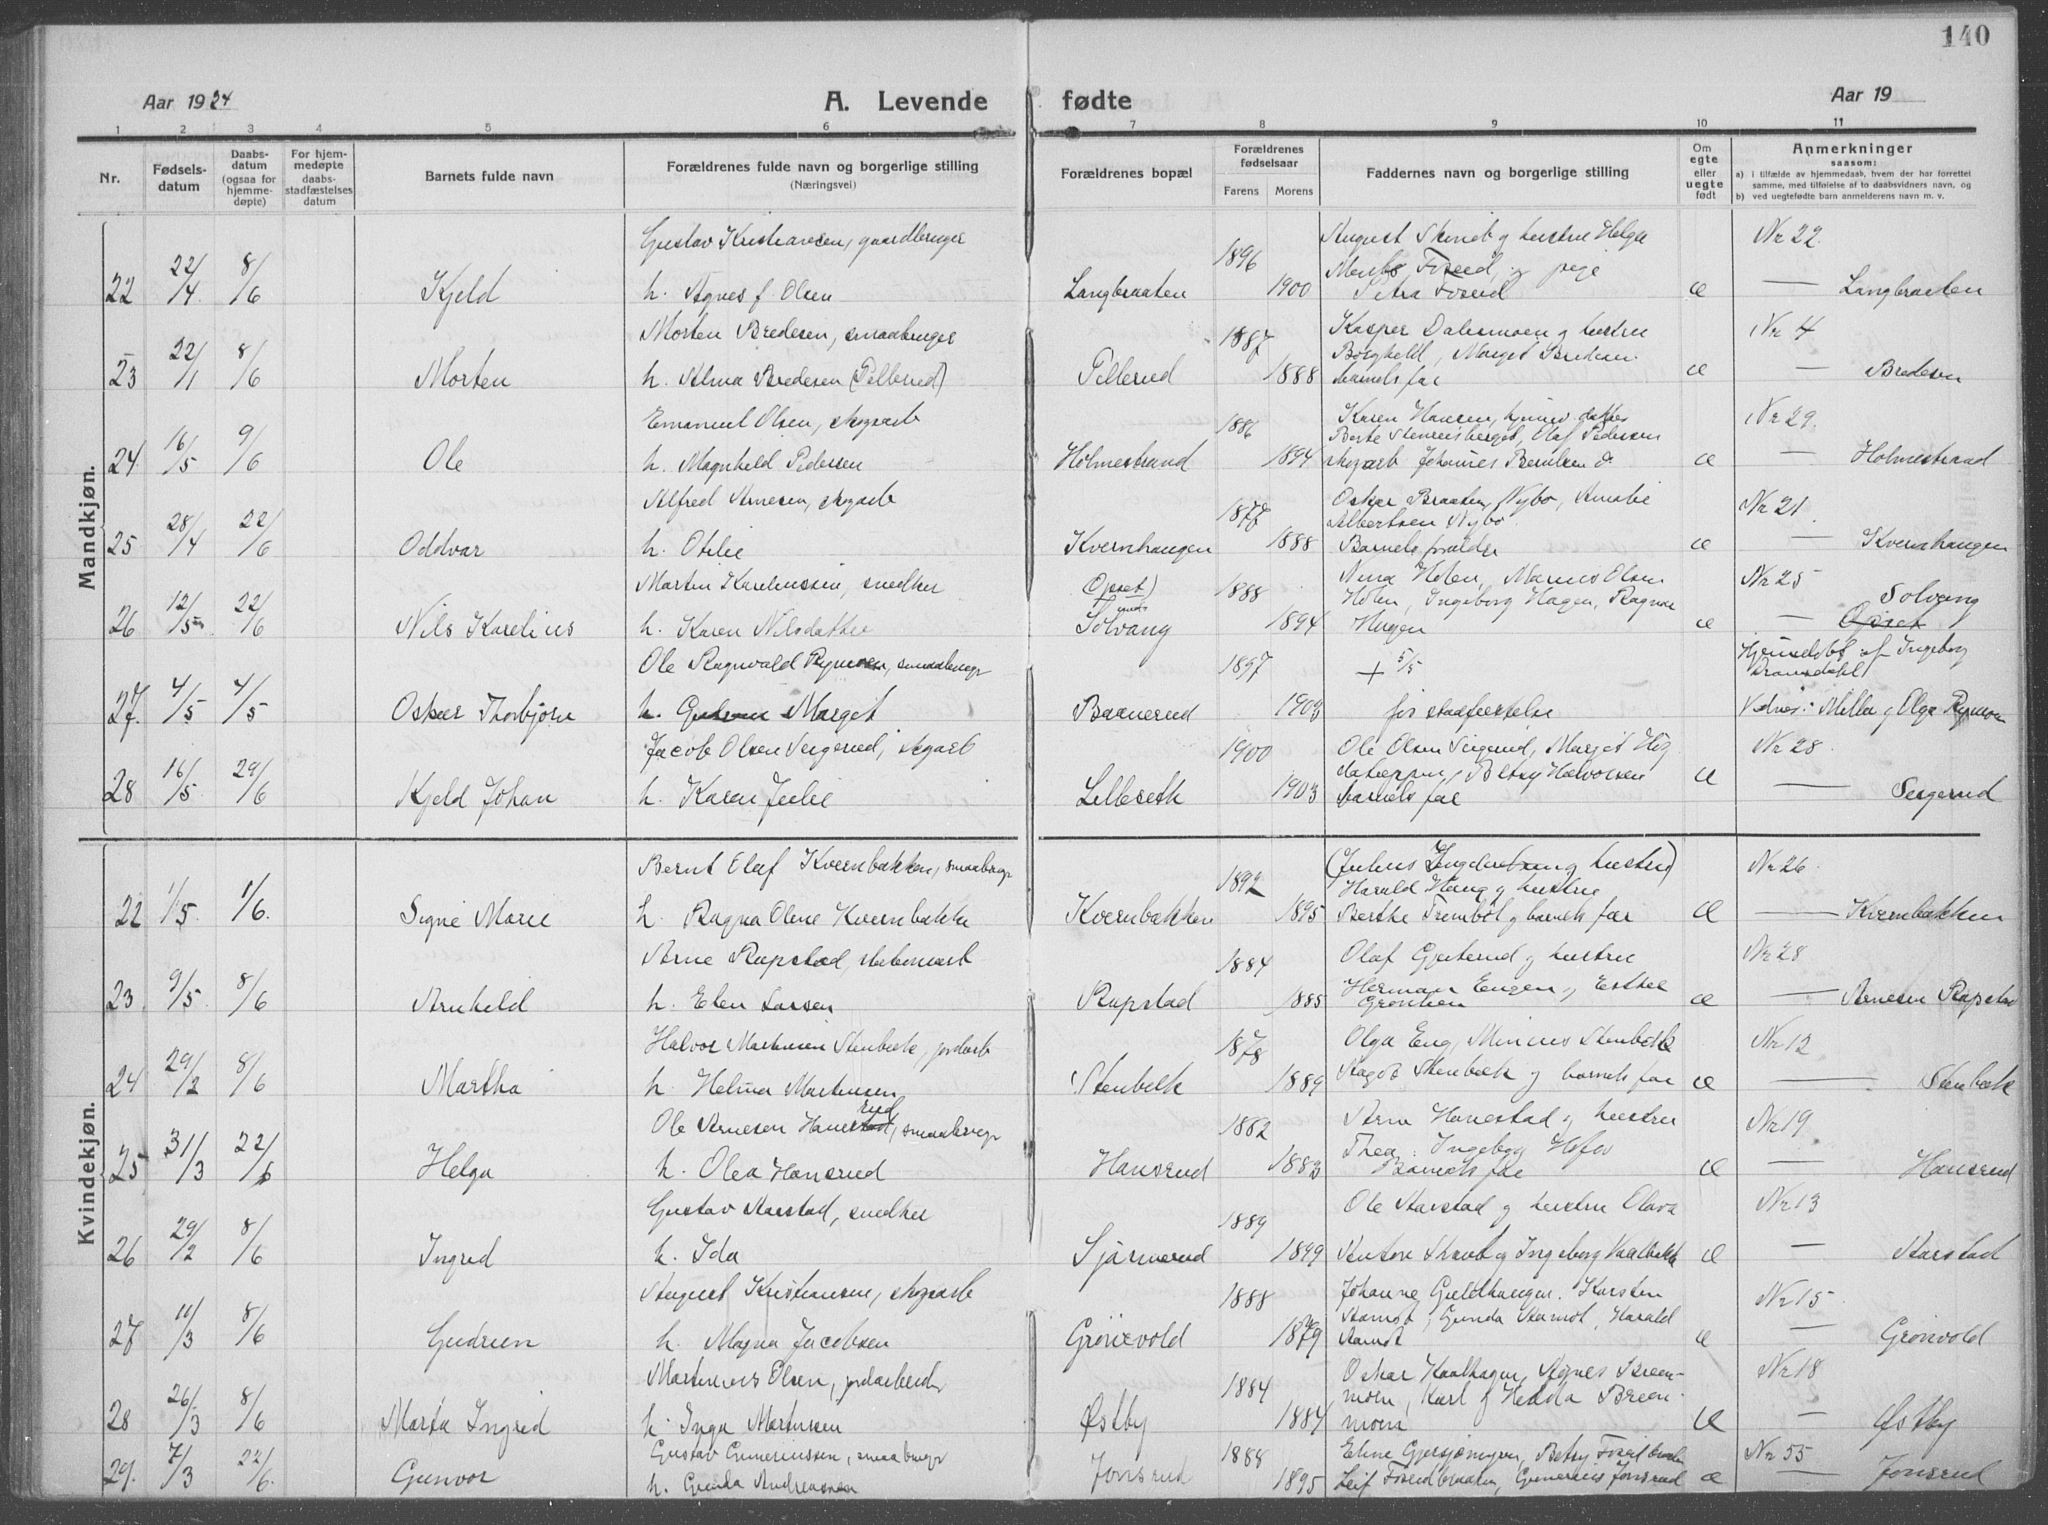 140
Aar 1924
A. Levende fødte
Aar 19
1 2 3 4 5 6 7 8 9 10 11
Nr.
Fødsels-
datum
Daabs-
datum
(ogsaa for
hjemme-
døpte)
For hjem-
medøpte
daabs-
stadfæstelses
datum
Barnets fulde navn
Forældrenes fulde navn og borgerlige stilling
(Næringsvei)
Forældrenes bopæl
Forældrenes
fødselsaar
Farens Morens
Faddernes navn og borgerlige stilling
Om
egte
eller
uegte
født
Anmerkninger
saasom:
a) i tilfælde av hjemmedaab, hvem der har forrettet
samme, med tilføielse af to daabsvidners navn, og
b) ved uegtefødte barn anmelderens navn m. v.
Mandkjøn.
Gustav Kristiansen, gaardbruger
1896
August og hustru Helga
Nr 22.
22 22/4 8/6 Kjeld h. Agnes f. Olsen Langbraaten 1900 Petra Fosrud æ — Langbraaten
Morten Bredesen, smaabruger
1887
Kasper Dalesmoen og hustru
Nr 4
Borghild, Margit Bredesen
23 22/1 8/6 Morten h. Alma Bredesen (Pellerud) Pellerud 1888 barnets far æ — Bredesen
Emanuel Olsen, skogsarb
1886
Karen Hansen,
Nr 29.
Olaf Pedersen
24 16/5 9/6 Ole h. Magnhild Pedersen Holmestrand 1894 skogarb Johannes æ — Holmestrand
Alfred Arnesen, skogarb
1877
Oskar Braaten, Nybo, Amalie
Nr 21
Albertsen Nybo
25 28/4 22/6 Oddvar h. Otilie Kvernhaugen 1888 Barnets forældre æ — Kvernhaugen
Martin Karelinssen, snedker
Opset)
1888
Nina Holen, Marius Olsen
Nr 25
Holen, Ingeborg Hagen, Ragnar
Solvang
26 12/5 22/6 Nils Karelius h. Karen Nilsdatter Solvang 1894 Hagen æ — Opset
Ole Ragnvald Rymoen, smaabrugr
1897
+ 5/5
Hjemmedøbt af Ingeborg
27. 4/5 4/5 Oskar Thorbjørn h. Gudrun Margit Baanerud 1903 før stadfæstelse Vidner: Milla og Olga Rymoen
Jacob Olsen Seigerud, skogarb
1900
Ole Olsen Seigerud, Marjit
Nr 28.
Betsy Halvorsen
28 16/5 29/6 Kjeld Johan h. Karen Julie Lillesæth 1903 barnets far æ — Seigerud
Kvindekjøn.
Bernt Olaf Kvernbakken, smaabrugr
1892
(Julius og hustru)
Nr 26
Harald Haug og hustru
22 1/5 1/6. Signe Marie h. Ragna Oline Kvernbakke Kvernbakken 1895 Berthe Frembøl og barnets far æ — Kvernbakken
Arne Rapstad,
1884
Olaf Gjuterud og hustru
Nr 28
Herman Engen og Esther
23 9/5 8/6 Arnhild h. Elen Larsen Rapstad 1885 æ — Arnesen Rapstad
Halvor Martinsen Stenbæk, jordarb
1878
Olga Eng, Minius Stenbæk
Nr 12
24 29/2 8/6 Martha h. Helma Martinsen Stenbæk 1889 Aagot Stenbæk og barnets far æ — Stenbæk
Ole Arnesen Hanestad, smaabrugr
rud
1882
Arne Hanestad og hustru
Nr 19
Thea, Ingeborg
25 31/3 22/6 Helga h. Olea Hansrud Hansrud 1883 Barnets far æ — Hansrud
Gustav Aarstad, snedker
1889
Ole Aarstad og hustru Olava
Nr 13
26 29/2 8/6 Ingrid h. Ida Sjørnerud 1899 Anton og Ingeborg æ — Aarstad
August Kristiansen, skogsarb
1888
Johanne Guldhaugen. Karsten
Nr 15
Aamot, Gunda Aamot, Harald
27 11/3 8/6 Gudrun h. Magna Jacobsen Grønvold 1879 Aamot æ — Grønvold
Martinius Olsen, jordarbeider
1884
Oskar Kaalhagen, Agnes Breen-
Nr 18
moen, Karl og Hedda Breen-
28 26/3 8/6 Marta Ingrid h. Inga Martinsen Østby 1884 moen æ — Østby
Gustav Gunerinssen, smaabrugr
1888
Eline
Nr 55
29. 7/3 22/6. Gunvor h. Gunda Andreassen Jonsrud 1895 Leif Fosrudbraaten, Gunerius Jonsrud æ — Jonsrud